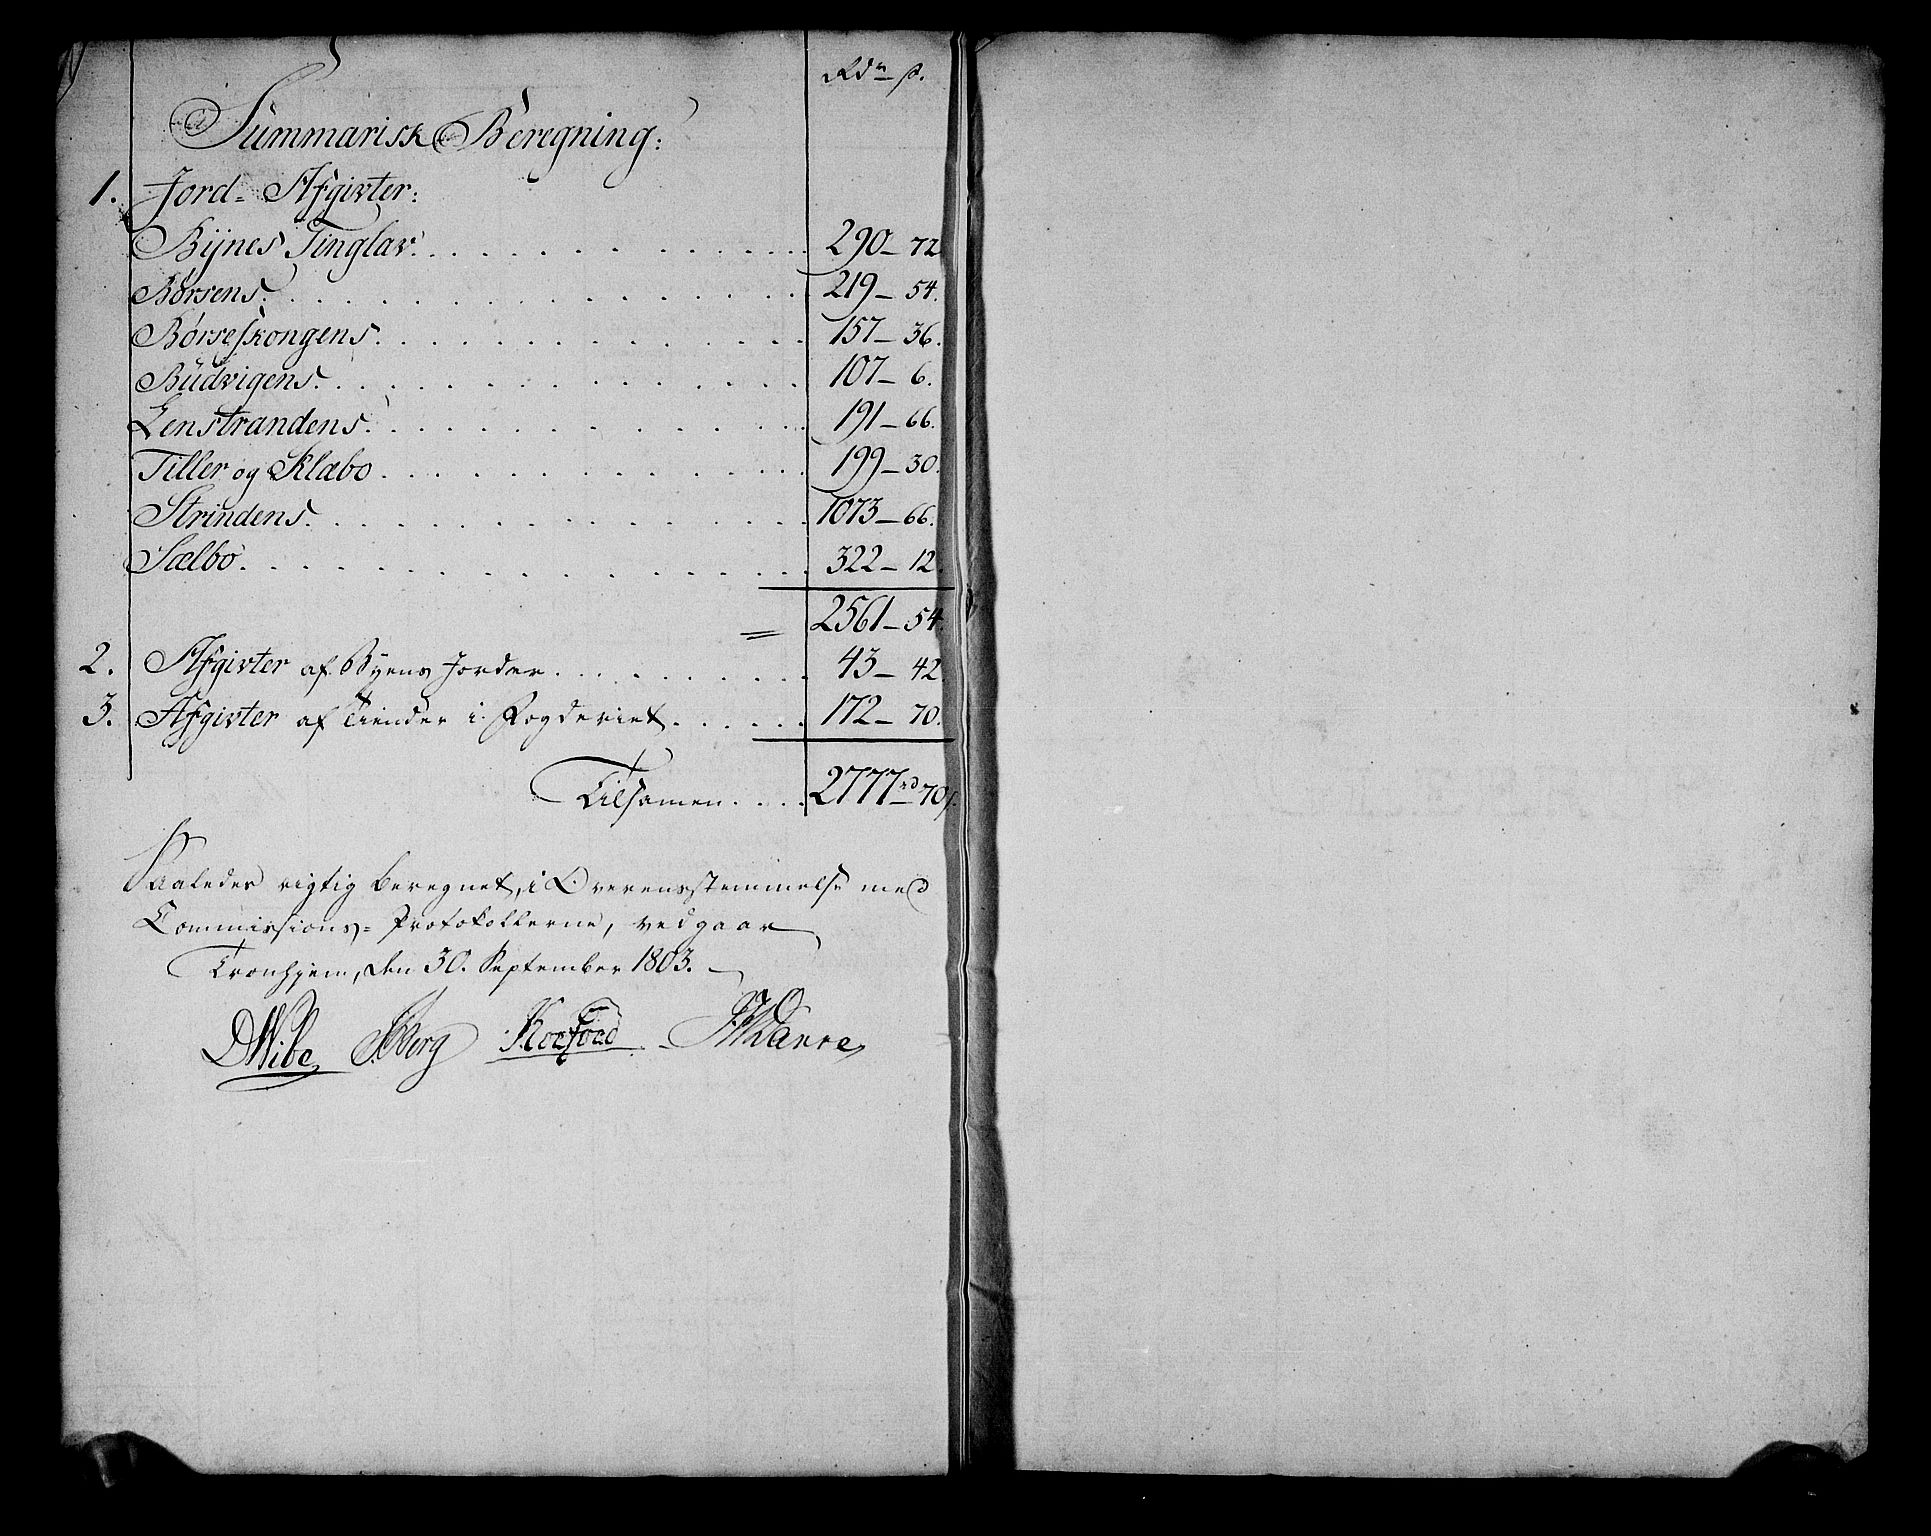 Rdr ß.
Summarisk Beregning:
1. Jord- Afgivter:
Bÿnes Tinglav. 290 – 72
Børsens. 219 – 54.
Børseskongens. 157 – 36.
Büdvigens. 107 – 6.
Lenstrandens. 191 – 66.
Tiller og Klæbo. 199 – 30.
Strindens. 1073 – 66.
Sælbo. 322 – 12.
2561 – 54.
2. Afgivter af Byens Jorder. 43 – 42
3. Afgivter af Tiender i Fogderiet. 172 – 70.
Tilsamen. 2777 rd 70 ß.
Saaledes rigtig beregnet, i Overensstemmelse med
Commissions- Protokollerne, vedgaar
Tronhjem, den 30. September 1803.
DWibe Berg Koefoed